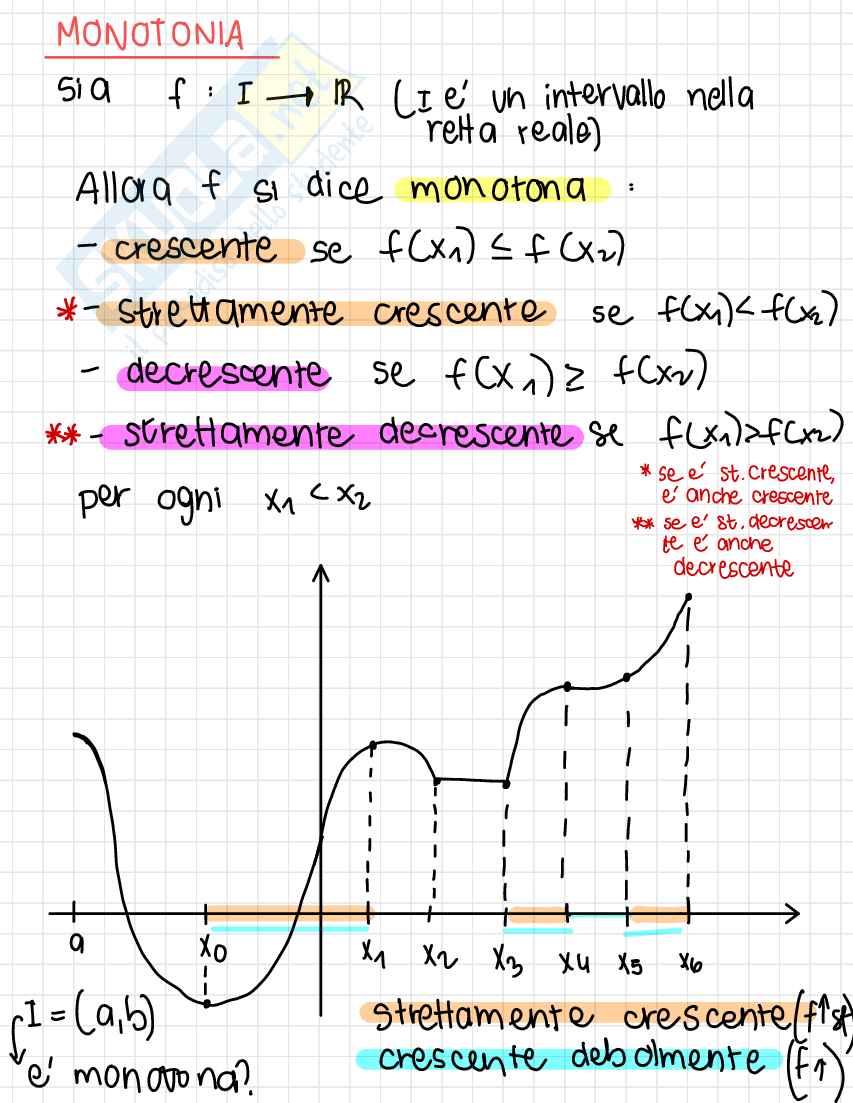 MONOTONIA
Sia f : I → ℝ (I e' un intervallo nella
retta reale)
Allora f si dice monotona :
- crescente se f(x₁) ≤ f(x₂)
* - strettamente crescente se f(x₁) < f(x₂)
- decrescente se f(x₁) ≥ f(x₂)
** - strettamente decrescente se f(x₁) > f(x₂)
per ogni x₁ < x₂
* se e' st. crescente,
e' anche crescente
** se e' st. decrescen
te e' anche
decrescente
a x₀ x₁ x₂ x₃ x₄ x₅ x₆
I = (a,b)
e' monotona?
strettamente crescente (f↑st)
crescente debolmente (f↑)
SKUOLA.net